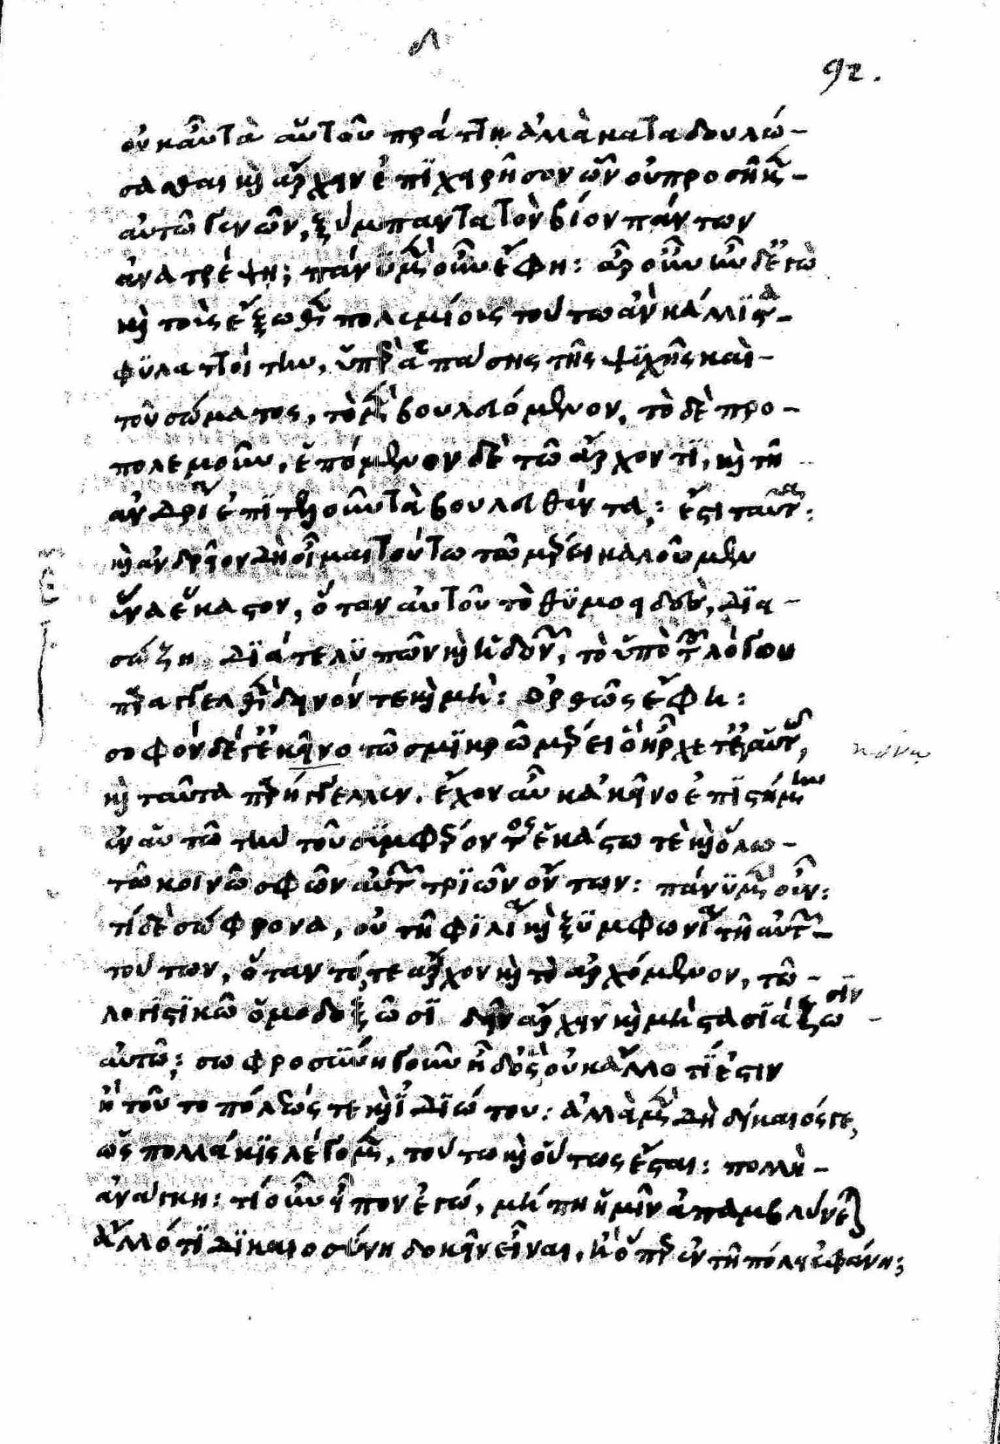 92.
οὐκ αὖ τὰ αὑτοῦ πράττῃ ἀλλὰ καταδουλώ-
σασθαι καὶ ἄρχειν ἐπιχειρήσῃ ὧν οὐ προσῆκ-
αὐτῷ γενῶν, ξύμπαντα τὸν βίον πάντων
ἀνατρέψῃ; πάνυ μὲν οὖν ἔφη: ἆρ' οὖν ἦν δὲ ἐγὼ
καὶ τοὺς ἔξωθεν πολεμίους τούτω ἂν κάλλιστα
φυλαττοίτην, ὑπὲρ ἁπάσης τῆς ψυχῆς καὶ-
τοῦ σώματος, τὸ μὲν βουλευόμενον, τὸ δὲ προ-
πολεμοῦν, ἑπόμενον δὲ τῷ ἄρχοντι, καὶ τῇ
ἀνδρίᾳ ἐπιτελοῦν τὰ βουλευθέντα; ἔστι ταῦτα:
καὶ ἀνδρεῖον δὴ οἶμαι τούτῳ τῷ μέρει καλοῦμεν
ἕνα ἕκαστον, ὅταν αὐτοῦ τὸ θυμοειδὲς, δια-
σώζῃ διά τε λυπῶν καὶ ἡδονῶν, τὸ ὑπὸ τοῦ λόγου
παραγγελθὲν δεινόν τε καὶ μή: ὀρθῶς ἔφη:
σοφὸν δέ γε ἐκείνῳ τῷ σμικρῷ μέρει ὃ ἦρχέ τε ἐν αὐτῷ,
καὶ ταῦτα παρήγγελλεν. ἔχον αὖ κἀκεῖνο ἐπιστήμην
ἐν αὑτῷ τὴν τοῦ συμφέροντος ἑκάστῳ τε καὶ ὅλῳ-
τῷ κοινῷ σφῶν αὐτῶν τριῶν ὄντων: πάνυ μὲν οὖν:
τί δὲ σώφρονα, οὐ τῇ φιλίᾳ καὶ ξυμφωνίᾳ τῇ αὐτῶν-
τούτων, ὅταν τό, τε ἄρχον καὶ τὸ ἀρχόμενον, τῷ-
λογιστικῷ ὁμοδοξῶσι δεῖν ἄρχειν καὶ μὴ στασιάζωσιν
αὐτῷ; σωφροσύνη γοῦν ἦ δὸς οὐκ ἄλλο τί ἐστιν
ἢ τοῦτο πόλεώς τε καὶ ἰδιώτου: ἀλλὰ μὲν δὴ δίκαιός γε,
ᾧ πολλάκις λέγομεν, τούτῳ καὶ οὕτως ἔσται: πολλὴ-
ἀνάγκη: τί οὖν εἶπον ἐγώ, μή πῃ ἡμῖν ἀπαμβλύνεται
ἄλλό τι δικαιοσύνη δοκεῖν εἶναι, ἢ ὅπερ ἐν τῇ πόλει ἐφάνη;